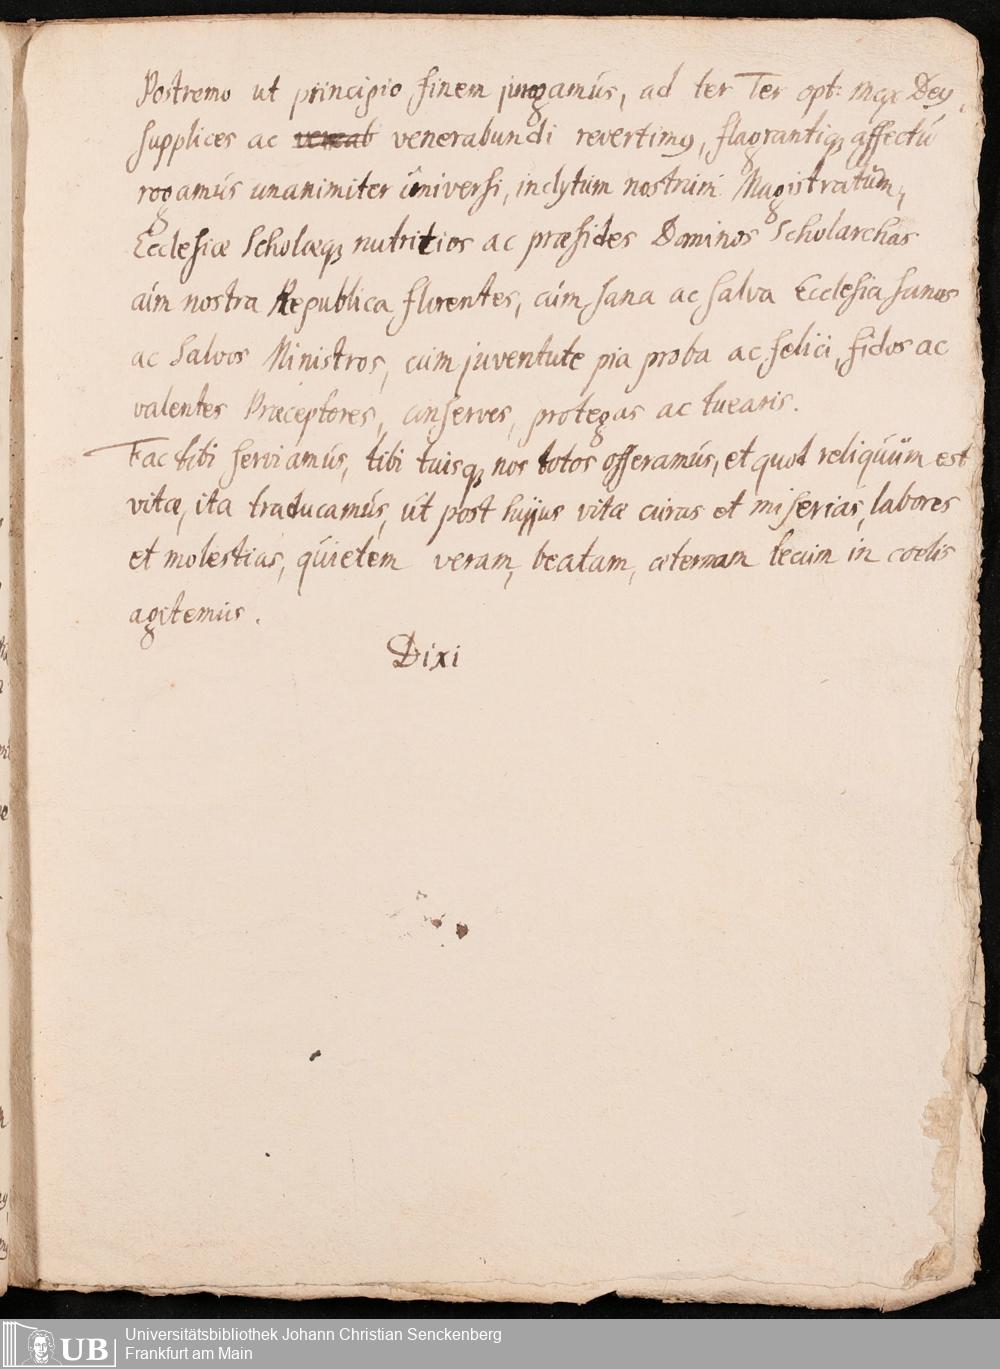 Postremo ut principio finem jungamus, ad ter Ter opt: Max Deu,
supplices ac venerabundi revertimꝰ, flagrantiqꝫ affectu
rogamus unanimiter universi, inclytum nostrum Magistratum,
Ecclesiæ Scholæqꝫ nutritios ac præsides Dominos Scholarchas
cum nostra Republica florentes, cum sana ac salva Ecclesia sanos
ac salvos Ministros, cum juventute pia proba ac felici, fidos ac
valentes Præceptores, conserves, protegas ac tuearis.
Fac tibi serviamus, tibi tuisqꝫ nos totos offeramus, et quod reliquum est
vitæ, ita traducamus, ut post hujus vitæ curas et miserias, labores
et molestias, quietem veram, beatam, æternam tecum in coelis
agitemus.
Dixi
UB
Universitätsbibliothek Johann Christian Senckenberg
Frankfurt am Main